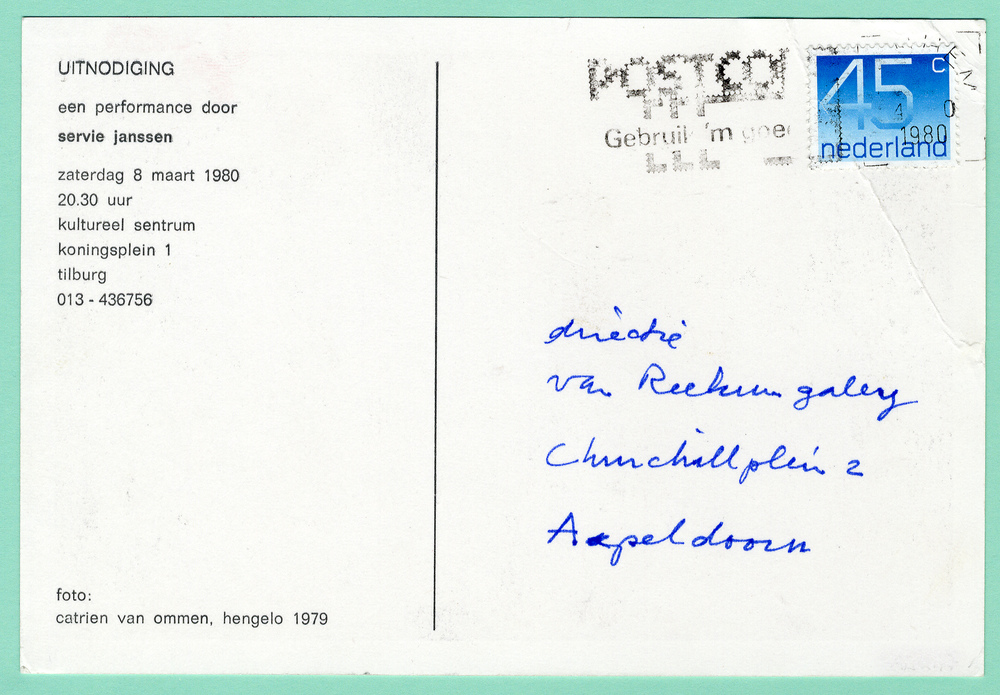 UITNODIGING
een performance door
servie janssen
zaterdag 8 maart 1980
20.30 uur
kultureel sentrum
koningsplein 1
tilburg
013 - 436756
foto:
catrien van ommen, hengelo 1979
POSTCO
Gebruik 'm goe
45 c
nederland
1980
directie
van Reekum galery
Churchillplein 2
Apeldoorn